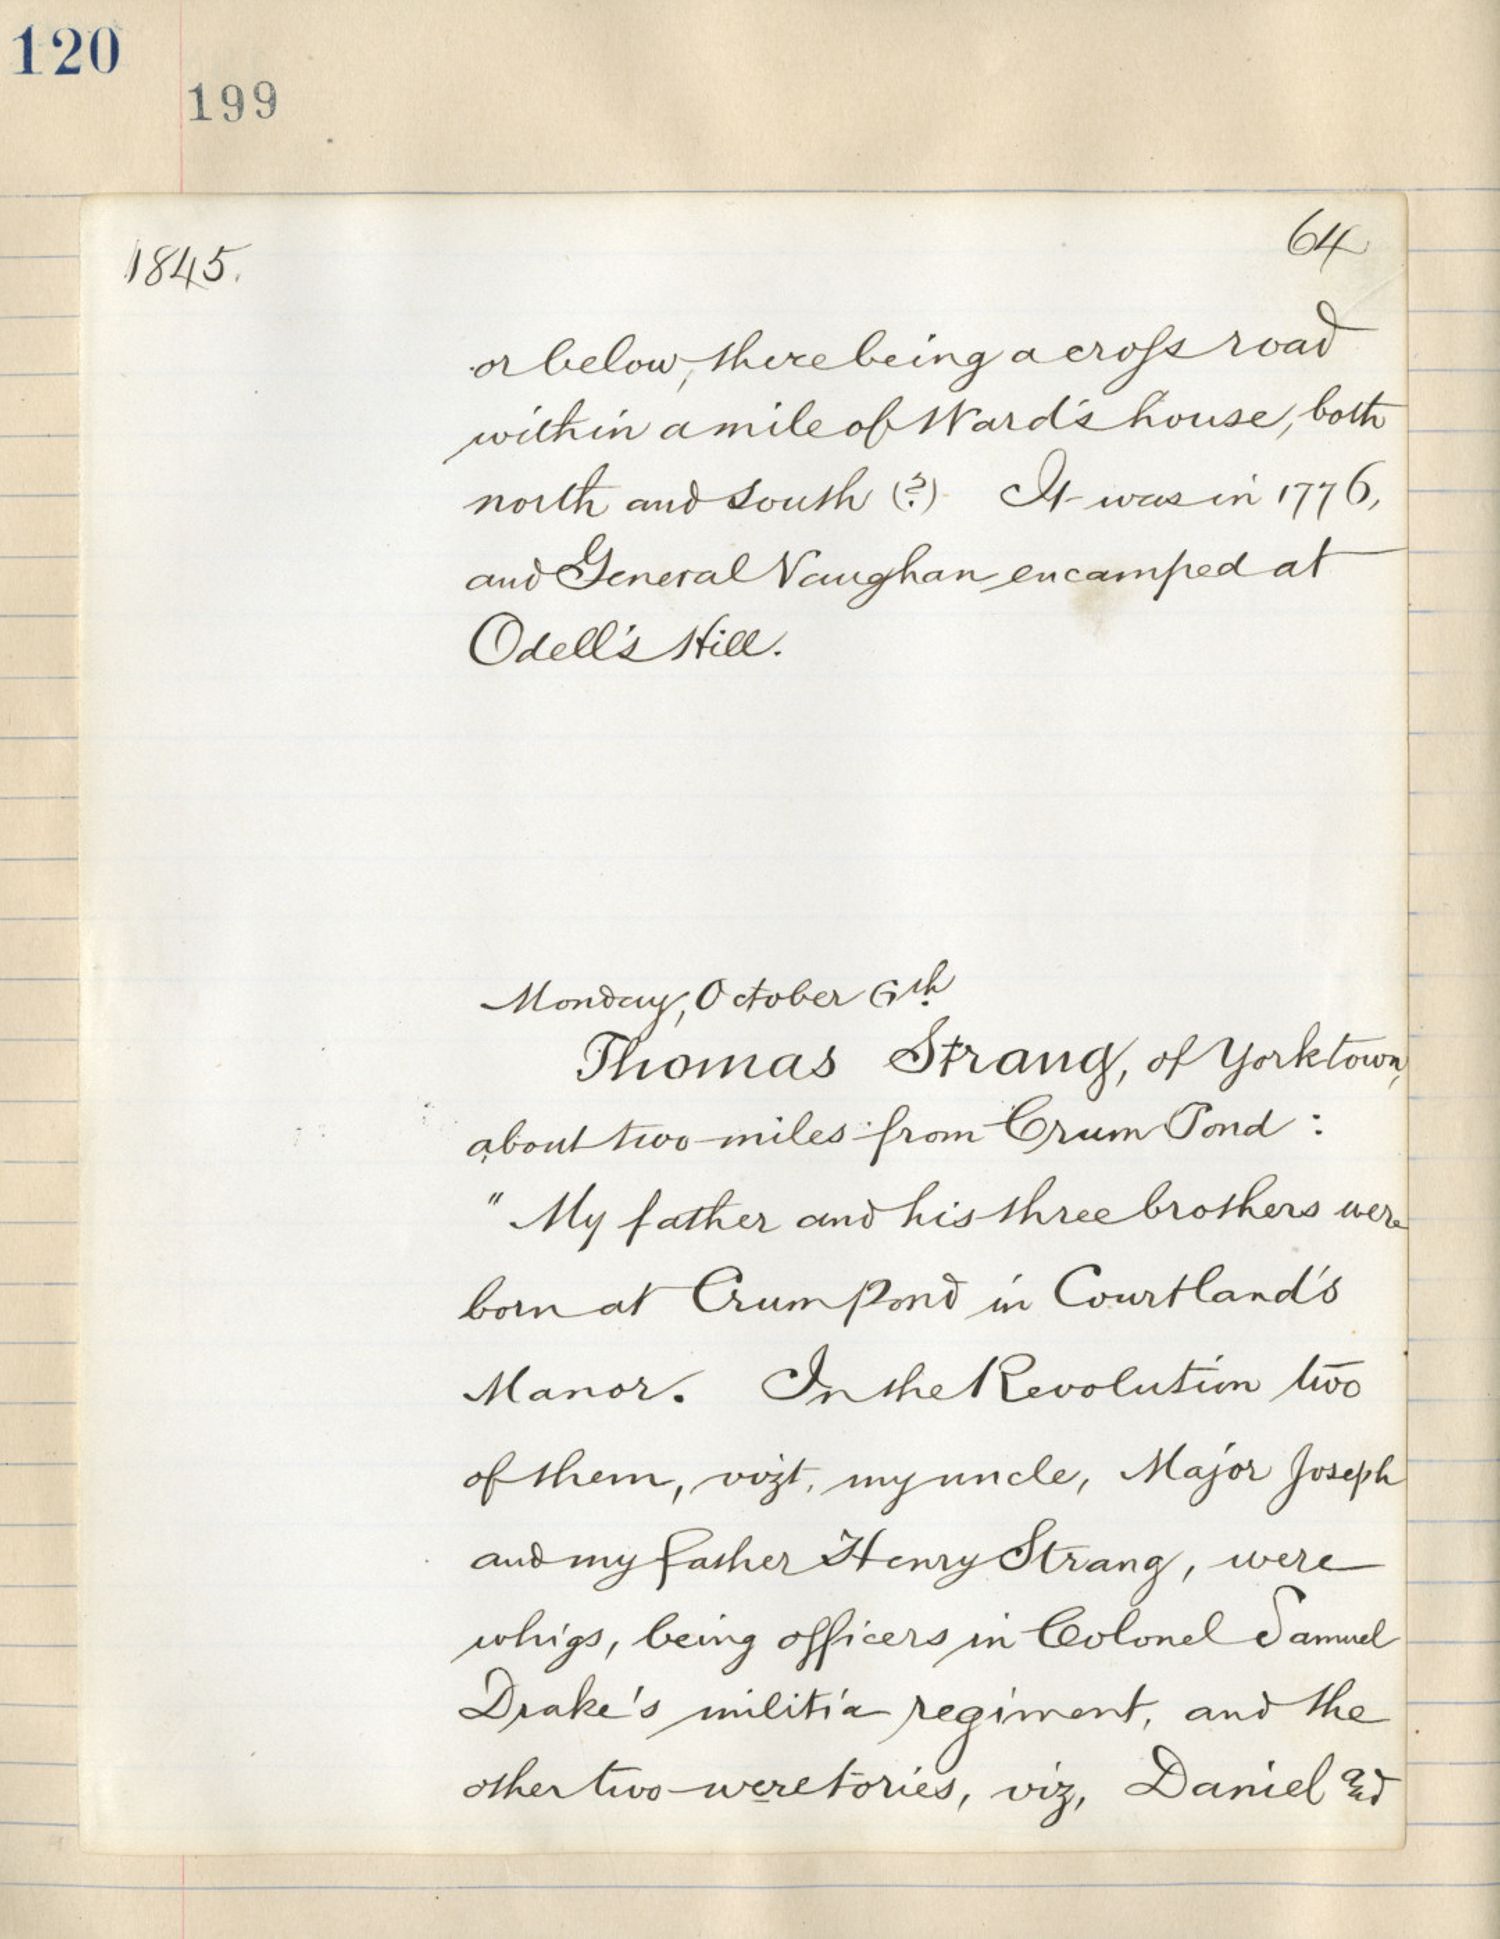 120
199
1845.
64
or below, there being a cross road
within a mile of Ward's house, both
north and south (?) It was in 1776,
and General Vaughan encamped at
Odell's Hill.
Monday, October 6th.
Thomas Strang, of Yorktown,
about two miles from Crum Pond :
" My father and his three brothers were
born at Crumpond in Courtland's
Manor. In the Revolution two
of them, vizt, my uncle, Major Joseph
and my father Henry Strang, were
whigs, being officers in Colonel Samuel
Drake's militia regiment, and the
other two were tories, viz, Daniel and